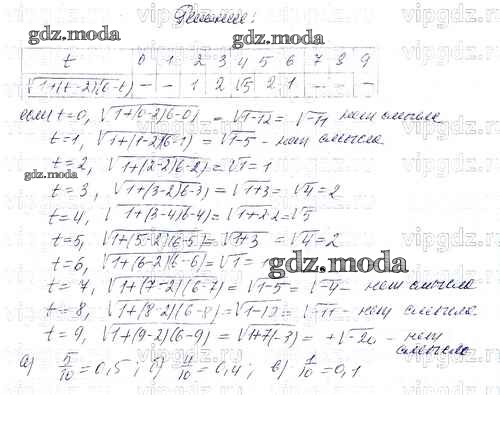 Решение:
t 0 1 2 3 4 5 6 7 8 9
√1+(t-2)(6-t) - - 1 2 √5 2 1 - - -
если t=0, √1+(0-2)(6-0) = √1-12 = √-11 нет смысла
t=1, √1+(1-2)(6-1) = √1-5 - нет смысла
t=2, √1+(2-2)(6-2) = √1 = 1
t=3, √1+(3-2)(6-3) = √1+3 = √4 = 2
t=4, √1+(3-4)(6-4) = √1+2·2 = √5
t=5, √1+(5-2)(6-5) = √1+3 = √4 = 2
t=6, √1+(6-2)(6-6) = √1 = 1
t=7, √1+(7-2)(6-7) = √1-5 = √-4 - нет смысла
t=8, √1+(8-2)(6-8) = √1-12 = √-11 - нет смысла
t=9, √1+(9-2)(6-9) = √1+7(-3) = +√-20 - нет
смысла
а) 5/10 = 0,5; б) 4/10 = 0,4; в) 1/10 = 0,1
gdz.moda
gdz.moda
gdz.moda
gdz.moda
vipgdz.ru